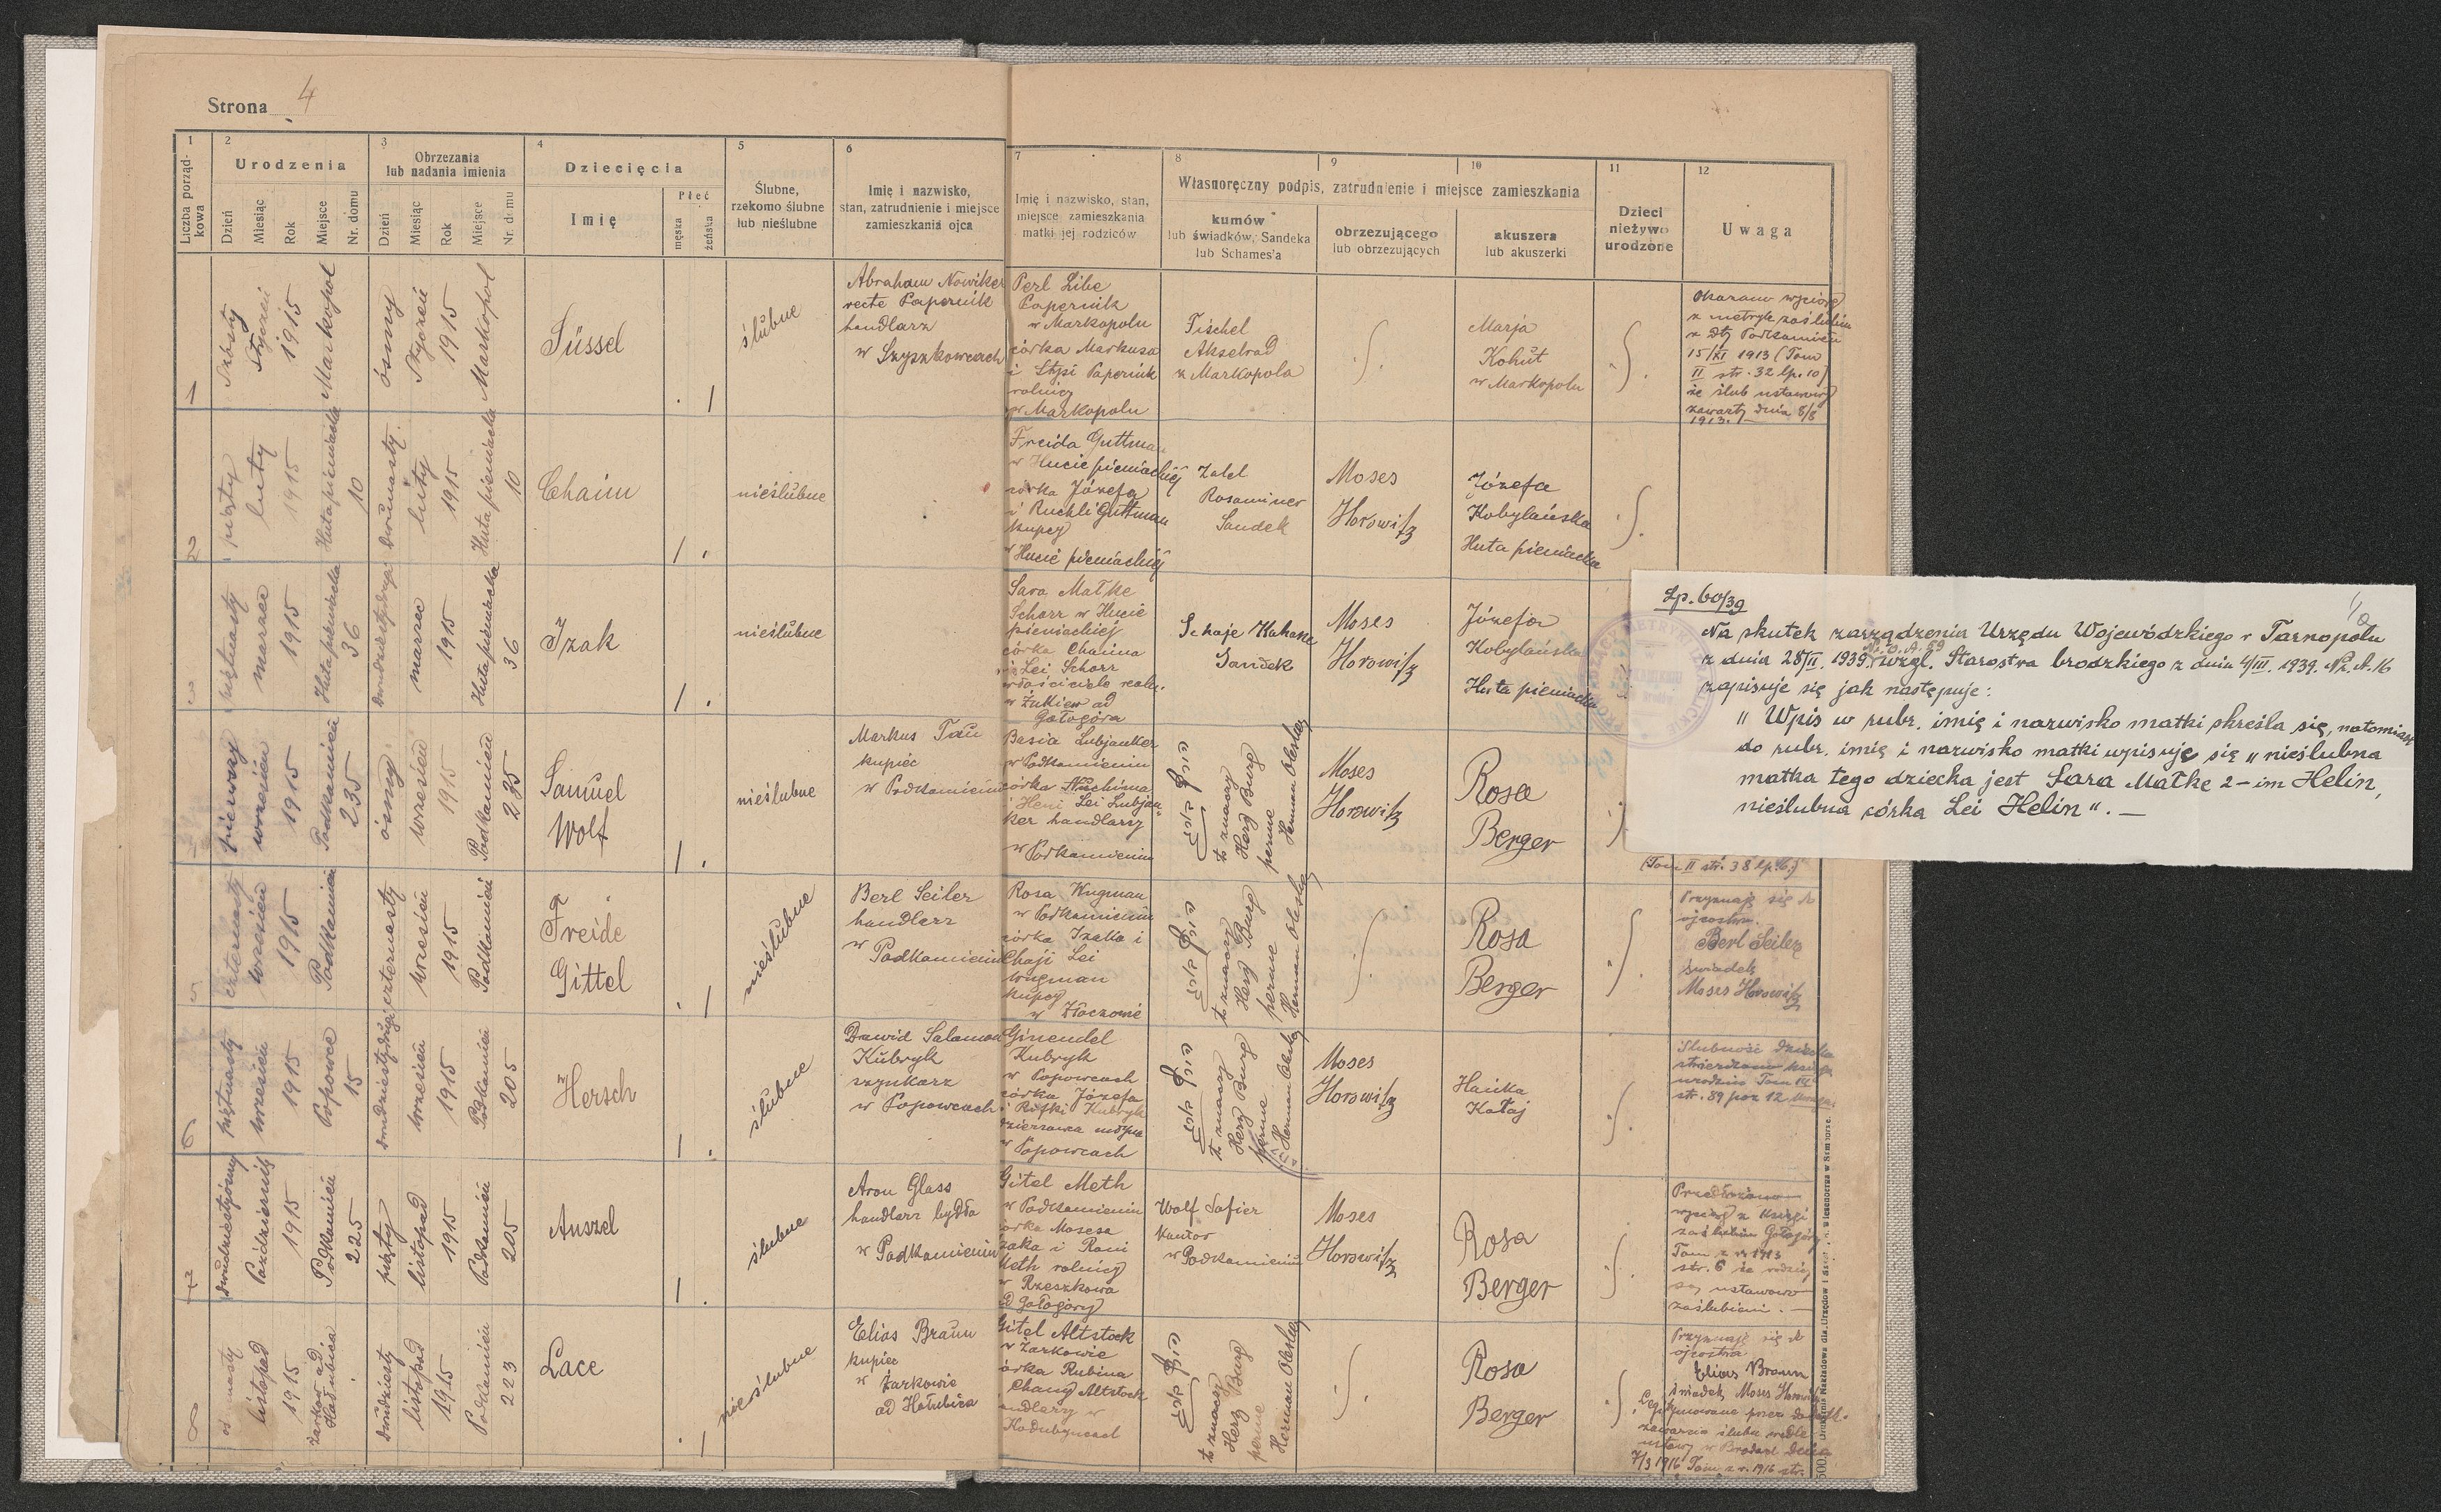 Strona 4
1 2 3 4 5 6 7 8 9 10 11 12
Liczba porząd-
kowa
Urodzenia
Dzień
Miesiąc
Rok
Miejsce
Nr. domu
Obrzezania
lub nadania imienia
Dzień
Miesiąc
Rok
Miejsce
Nr. domu
Dziecięcia
Imię
Płeć
męska
żeńska
Ślubne,
rzekomo ślubne
lub nieślubne
Imię i nazwisko,
stan, zatrudnienie i miejsce
zamieszkania ojca
Imię i nazwisko, stan,
miejsce zamieszkania
matki jej rodziców
Własnoręczny podpis, zatrudnienie i miejsce zamieszkania
kumów
lub świadków, Sandeka
lub Schames'a
obrzezującego
lub obrzezujących
akuszera
lub akuszerki
Dzieci
nieżywo
urodzone
Uwaga
1
Styczeń
1915
Markopol
ósmy
Styczeń
1915
Markopol
Süssel
ślubne
Abraham Nowiker
recte Papernik
handlarz
w Szyszkowcach
Perl Libe
Papernik
w Markopolu
córka Markusa
i Papernik
rolnicy
w Markopolu
Fischel
Akselrad
z Markopola
Marja
Kohut
w Markopolu
Okazano wyciąg
z metryk zaślubin
15/XI 1913 (Tom
II str. 32 lp. 10)
że ślub ustawowy
zawarty dnia 8/8
1913.
2
piąty
luty
1915
Huta pieniacka
10
dwunasty
luty
1915
Huta pieniacka
10
Chaim
nieślubne
Freida Guttman
w Hucie pieniackiej
córka Józefa
i Ruchli Guttman
kupcy
w Hucie pieniackiej
Rosaminer
Sandek
Moses
Horowitz
Józefa
Kobylańska
Huta pieniacka
3
piętnasty
marzec
1915
Huta pieniacka
36
dwudziestydrugi
marzec
1915
Huta pieniacka
36
Izak
nieślubne
Sara Małke
Scharr w Hucie
pieniackiej
córka Chaima
i Lei Schorr
właściciele realn.
w Żukiew ad
Gołogóra
Schaje Kahane
Sandek
Moses
Horowitz
Józefa
Kobylańska
Huta pieniacka
Lp. 60/39
Na skutek zarządzenia Urzędu Wojewódzkiego w Tarnopolu
z dnia 28/II. 1939 wzgl. Starostwa brodzkiego z dnia 4/III. 1939. Nr. A. 16
zapisuje się jak następuje:
" Wpis w rubr. imię i nazwisko matki skreśla się, natomiast
do rubr. imię i nazwisko matki wpisuję się „ nieślubna
matka tego dziecka jest Sara Małke 2-im Helin,
nieślubna córka Lei Helin ". —
pierwszy
wrzesień
1915
Podkamień
235
ósmy
wrzesień
1915
Podkamień
235
Samuel
Wolf
nieślubne
Markus Tau
kupiec
w Podkamieniu
Basia Lubjanker
w Podkamieniu
córka Nuchima
i Heni Lei Lubjan
ker handlarzy
w Podkamieniu
to znaczy
Herz Burg
Moses
Horowitz
Rosa
Berger
(Tom II str. 38 lp. 6.)
5
czternasty
wrzesień
1915
Podkamień
czternasty
wrzesień
1915
Podkamień
Freide
Gittel
nieślubne
Berl Seiler
handlarz
w
Podkamieniu
Rosa Wugman
w Podkamieniu
córka Izaka i
Chaji Lei
Wugman
kupcy
w Złoczowie
to znaczy
Herz Burg
Rosa
Berger
Przyznaję się do
ojcostwa.
Berl Seiler
świadek
Moses Horowitz
6
piętnasty
wrzesień
1915
Popowce
15
dwudziestydrugi
wrzesień
1915
Podkamień
205
Hersch
ślubne
Dawid Salamon
Kubryk
szynkarz
w Popowcach
Ginendel
Kubryk
w Popowcach
córka Józefa
i Rifki Kubryk
dzierżawca młyna
w Popowcach
to znaczy
Herz Burg
Moses
Horowitz
Hańka
Kataj
Ślubność dziecka
stwierdzono księga
urodzin Tom III
str. 89 poz 12
7
dwudziestyósmy
Październik
1915
Podkamień
225
piąty
listopad
1915
Podkamień
205
Anszel
ślubne
Aron Glass
handlarz bydła
w Podkamieniu
Gitel Meth
w Podkamieniu
córka Mosesa
Izaka i Rani
Meth rolnicy
w Rzeszkowa
ad Gołogóry
Wolf Safier
Kantor
w Podkamieniu
Moses
Horowitz
Rosa
Berger
Przedłożono
wyciąg z księgi
zaślubin Gołogóry
Tom z r. 1913
str. 6 że rodzice
są ustawowo
zaślubieni. —
8
listopad
1915
Żarków ad
Hołubica
dwudziesty
listopad
1915
Podkamień
223
Lace
nieślubne
Elias Braun
kupiec
w
Żarkowie
ad Hołubica
Gitel Altstock
w Żarkowie
córka Rubina
Chany Altstock
handlarzy w
to znaczy
Herz Burg
Rosa
Berger
Przyznaję się do
ojcostwa
Elias Braun
świadek Moses Horowitz
zawarcie ślubu wedle
ustawy w Brodach dnia
7/3 1916 Tom z r. 1916 str.